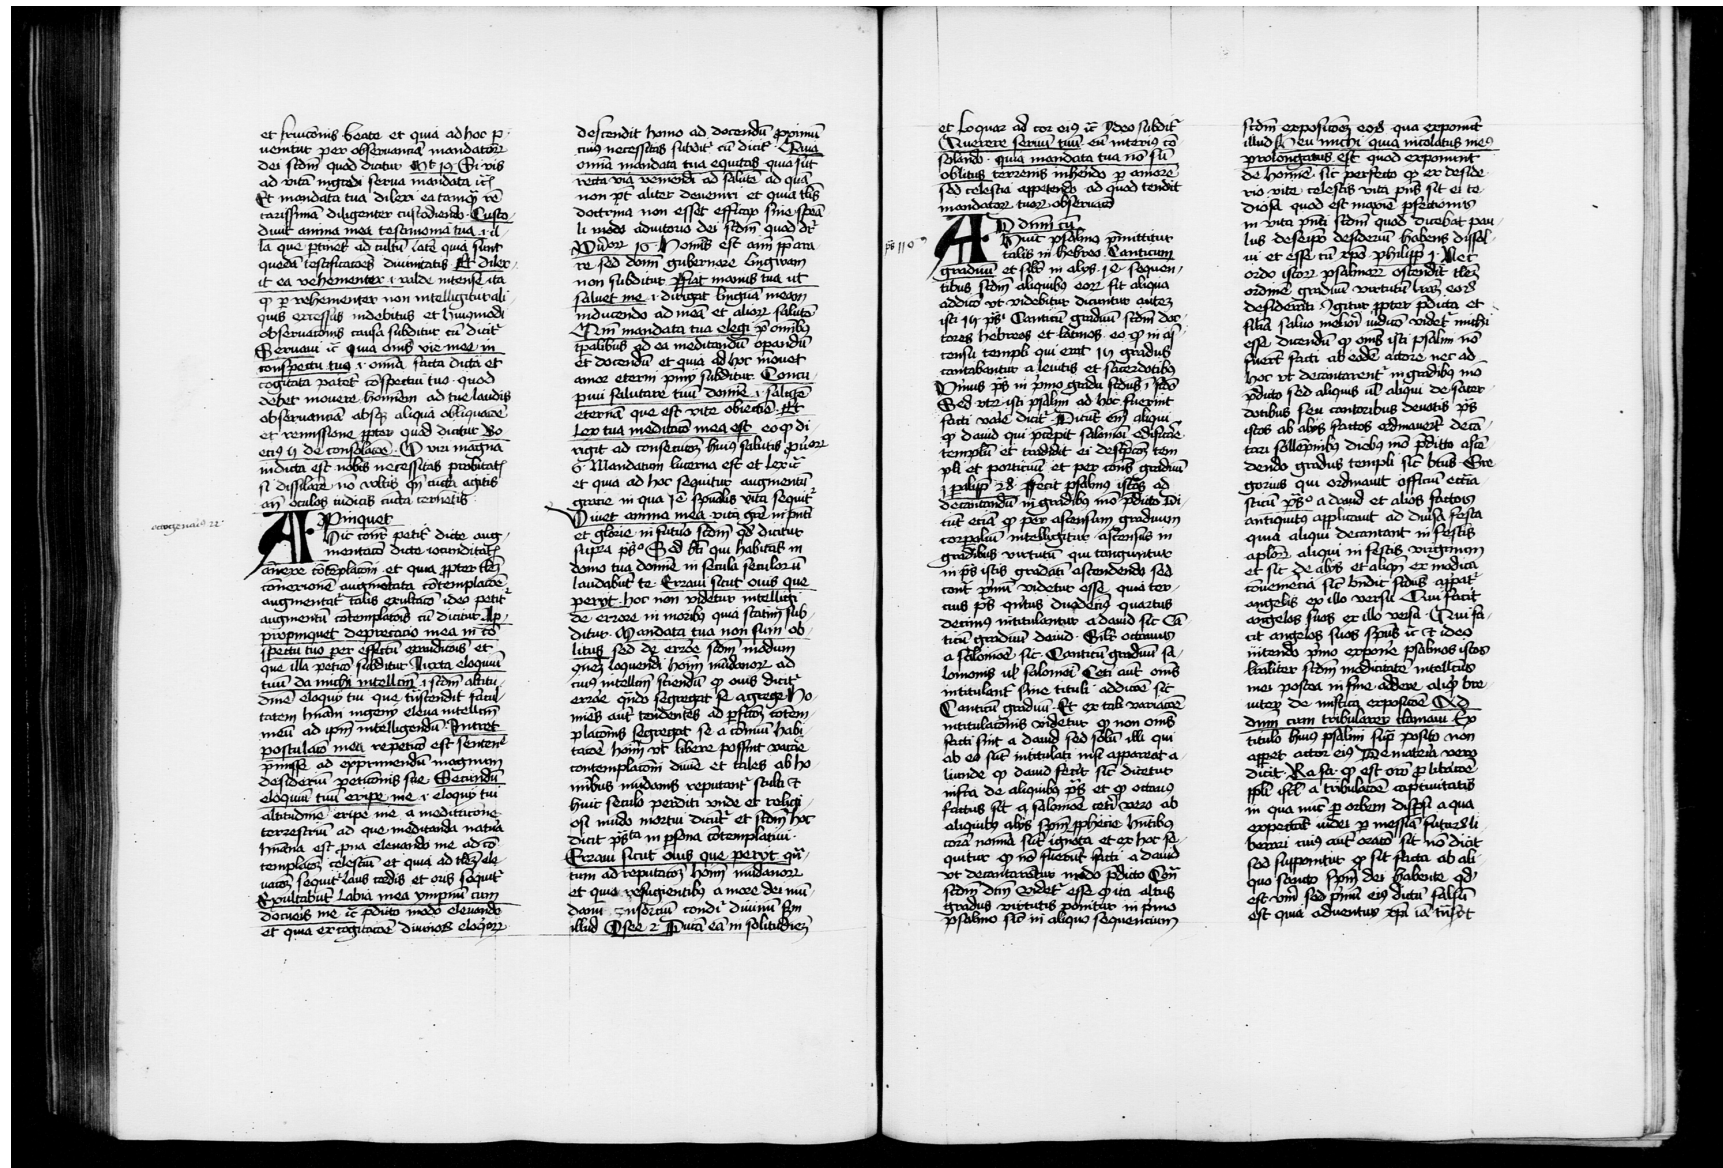 et fruicōnis beate et quia ad hoc p
venitur per observanciā mandatorꝝ
dei scdm̄ quod dicitur Mt 19 Si vis
ad vitā ingredi serva mandata
Et mandata tua dilexi ea tamqͣ rē
carissimā diligenter custodiendo Custo
divit anima mea testimonia tua i il
la que ꝑtinet ad cultū quia sunt
quedā testificacōes divinitatis Et dilex
it ea vehementer i valde intense ita
ꝙ ꝑ vehementer non intelligitur ali
quis excessus indebitus et huiusmodi
observacōnis causa subditur cū dicit
Servavi quia oms vie mee in
conspectu tuo i omīa facta dicta et
cogitata patent cōspectui tuo quod
debet movere hominem ad tue laudis
observanciā absqꝫ aliqua obliquacōe
et remissione ꝓpter quod dicitur Bo
ecius 5 de consolacōe O viri magna
indicta est nobis necessitas probitatꝭ
si dissilare nō vultis cū cūcta agitis
an̄ oculos iudicis cūcta cernētis
Appinquet
Hic con̄r petit dicte aug
mentacō dicte iocunditatꝭ
cōtēplacōni et quia ꝓpter
conexionē augmentata cōtemplacōe
augmentat talis exultacō ideo petit
augmentū cōtemplacōis cū dicitur Ap
propinquet deprecacio mea in cō
spectu tuo per effectū exaudicōis et
que illa peticō subditur Iuxta eloquiū
tuū da michi intellcm̄ i scdm̄ altitu
dinē eloquij tui que trāscendit facul
tatem hmāni ingenij eleva intellcm̄
meū ad ipm̄ intelligendū Intret
postulacō mea repeticō est sentencie
p̄misse ad exprimendū magnum
desideriū peticionis sue Secundū
eloquiū tuū eripe me i eloquij tui
altitudinē eripe me a meditacione
terrestriū ad que meditanda natura
hmāna est ꝓna elevando me ad cō
templacōꝫ celestiū et quia ad ele
vacōꝫ sequit laus cordis et oris sequit
Exultabūt labia mea ympnū cum
docueris me p̄dicto modo elevando
et quia ex cogitacōe divinorꝝ eloqorꝝ
octogenariꝰ 22
descendit homo ad docendū ꝓximū
cuiꝰ necessitas subdit cū dicit Quia
omīa mandata tua equitas quia sūt
recta via veniendi ad salutē ad quā
non pt aliter deveniri et quia
doctrina non esset efficax sine
li modo adiutorio dei scdm̄ quod dr
Prover 16 Hominis est aīm ꝑpara
re sed domī gubernare lingwam
non subditur Fiat manus tua ut
salvet me i dirigat lingua meam
inducendo ad meā et aliorꝝ salutē
Qm̄ mandata tua elegi p̄ omībꝰ
tꝑalibus ad ea meditandū operandū
et docendū et quia ad hoc movet
amor eterni p̄mij subditur Concu
pivi salutare tuū domīe i salutē
eternā que est vite obiectīe Et
lex tua meditacō mea est eo ꝙ di
rigit ad consecucōm huiꝰ salutis prover
6 Mandatum lucerna est et lex
et quia ad hoc sequitur augmentū
gracie in qua sp̄ualis vita sequit
Vivet anima mea vita grē in pn̄ti
et glorie in futuro scdm̄ qd dicitur
supra ps Sed bt̄i qui habitāt in
domo tua domīe in secula seculorū
laudabūt te Erravi sicut ovis que
perijt hoc non videtur intelligi
de errore in moribus quia statim sub
ditur Mandata tua non sum ob
litus sed de errore scdm̄ modum
loquendi hoīm mūdanorꝝ ad
cuiꝰ intellcm̄ sciendū ꝙ ovis dicit
errare qūdo segregat se a grege Ho
mines aut tendentes ad ꝑfcm̄ cōtem
placōnis segregāt se a comūi habi
tacōe hoīm ut libere possint vacare
contemplacōni divine et tales ab ho
minibus mūdanis reputant stulti et
huic seculo perditi unde et religi
osi mūdo mortui dicūt et scdm̄ hoc
dicit ps̄ta in ꝑsona cōtemplativi
Erravi sicut ovis que perijt quā
tum ad reputacōꝫ hoīm mūdanorꝝ
et quia refugientibus amore dei mū
dani consorciū condit divinū spm̄
illud Osee 2 Ducā eā in solitudinē
et loquar ad cor eiꝰ Ideo subdit
Querere servū tuū eū interiꝰ cō
solando quia mandata tua nō sū
oblitus terrenis inherendo ꝑ amorē
sed celestia appetendo ad quod tendit
mandatorꝝ tuorꝝ observacō
ps 119
Ad dnm̄ cū
Huic psalmo p̄mittitur
talis in hebreo Canticum
graduū et sil̄r in alijs 14 sequen
tibus scdm̄ aliquibus eorꝝ sit aliqua
addicō ut videbitur dicuntur autem
isti 15 ps Canticū graduū scdm̄ doc
tores hebreos et latinos eo ꝙ in as
censu templi qui erat 15 gradus
cantabantur a levitis et sacerdotibus
Primus ps in pmo gradu scdus in scdo
Sed utrꝫ isti psalmi ad hoc fuerint
facti varie dicit Dicūt em̄ aliqui
ꝙ david qui p̄cepit salomōi edificare
templū et tradidit ei descripcōꝫ tem
pli et porticuū et per cons̄ graduū
1 paralip 28 Fecit psalmus istos ad
decantandū in gradibus mō p̄dicto Di
cūt eciā ꝙ per ascensum graduum
corporaliū intelligitur ascensus in
gradibus virtutū qui tanguntur
in ps istis gradati ascendendo sed
cont primū videtur esse quia ter
cius ps quītus duodeciꝰ quartus
decimus intitulantur a david sic Cā
ticū graduū david Silr octavus
a salomōe sic Canticū graduū sa
lomonis ul salomōi Ceti aut oms
intitulant sine tituli addicōe sic
Canticū graduū Et ex tali variacōe
intitulacōnis videtur ꝙ non oms
facti sint a david sed solū illi qui
ab eo sūt intitulati nisi appareat a
liunde ꝙ david fecit sic dicetur
infra de aliquibus ps et ꝙ octavꝰ
factus sit a salomōe ceti vero ab
aliquibus alijs spm̄ ꝓphecie hn̄tibus
quorū nomīa sūt ignota et ex hoc se
quitur ꝙ nō fuerūt facti a david
ut decantarētur modo p̄dicto Con̄
scdm̄ dcm̄ videt esse ꝙ ita altus
gradus virtutis ponitur in pmo
psalmo sicut in aliquo sequencium
scdm̄ exposicōꝫ eorū qua exponūt
illud Heu michi quia incolatus meꝰ
prolongatus est quod exponunt
de homīe sic perfecto ꝙ ex deside
rio vite celestis vita pn̄s sit ei te
diosa quod est maxīe ꝑfectionis
in vita pn̄ti scdm̄ quod dicebat pau
lus de seipso desideriū habens dissol
vi et esse cū xpo philipp 1 Nec
ordo istorꝝ psalmorꝝ ostendit talem
ordinē graduū virtutū lrām eorū
desideranti Igitur ꝓpter p̄dicta et
silia salvo meliori iudicō videt michi
esse dicendū ꝙ oms isti psalmi nō
fuerūt facti ab eodē actore nec ad
hoc ut decantarent in gradibus mō
p̄dicto sed aliquis ul aliqui de sacer
dotibus seu cantoribus devotis ps
istos ab alijs factos ordinaverūt decā
tari sollēpnibus diebus mō p̄dicto ascē
dendo gradus templi sicut btūs Gre
gorius qui ordinavit officiū ecclia
sticū psos a david et alios factos
antiquitus applicavit ad divsa festa
quia aliqui decantant in festis
apl̄orꝝ aliqui in festis virginum
et sic de alijs et aliqn̄ ex modica
cōveniecia sicut bn̄dicit scdus appat
angelis ex illo versu Qui facit
angelos suos ex illo versu Qui fa
cit angelos suos sp̄us et ideo
intendo pmo exponere psalmos istos
lrāliter scdm̄ mediocritatē intellcūs
mei postea in fine addere aliqͥd bre
viter de mistica exposicōe Ad
dnm̄ cum tribularer clamavi Ex
titulo huiꝰ psalmi supͣ posito non
apꝑet actor eiꝰ De materia vero
dicit Ra Sa ꝙ est orō ꝑ libracōe
ppli isrl a tribulacōe captivitatis
in qua nūc ꝑ orbem dispsi a qua
expectāt iudei ꝑ messiā futurū li
berari cuiꝰ aut oracō sit nō dicit
sed supponitur ꝙ sit facta ab ali
quo sancto spm̄ dei habente qd
est verū sed primū eiꝰ dictū falsū
est quia adventus xpi iā trāsijt